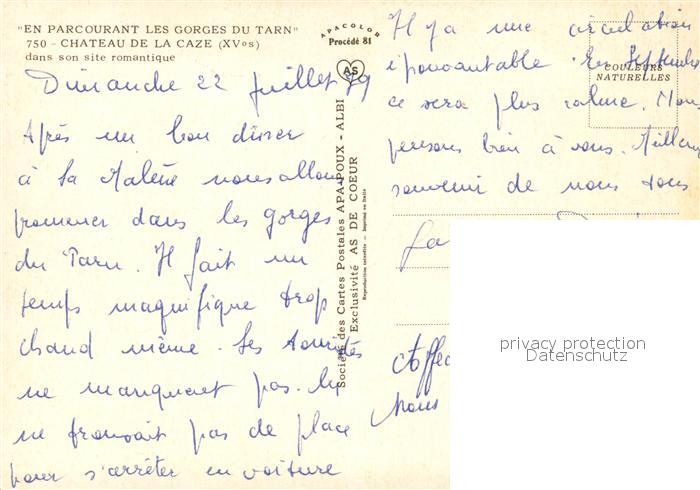 "EN PARCOURANT LES GORGES DU TARN"
750 - CHATEAU DE LA CAZE (XVes)
dans son site romantique
APACOLOR
Procédé 81
AS
COULEURS
NATURELLES
Société des Cartes Postales APA-POUX - ALBI
Exclusivité AS DE COEUR
Reproduction interdite - Imprimé en Italie
Dimanche 22 Juillet 79
Après un bon dîner
à la Malène nous allons
promener dans les gorges
du Tarn. Il fait un
temps magnifique trop
chaud même. Les touristes
ne manquent pas.
ne trouvait pas de place
pour s'arrêter en voiture
Il y a une circulation
épouvantable. En Septembre
ce sera plus calme. Nous
pensons bien à vous. Meilleur
souvenir de nous tous
privacy protection
Datenschutz